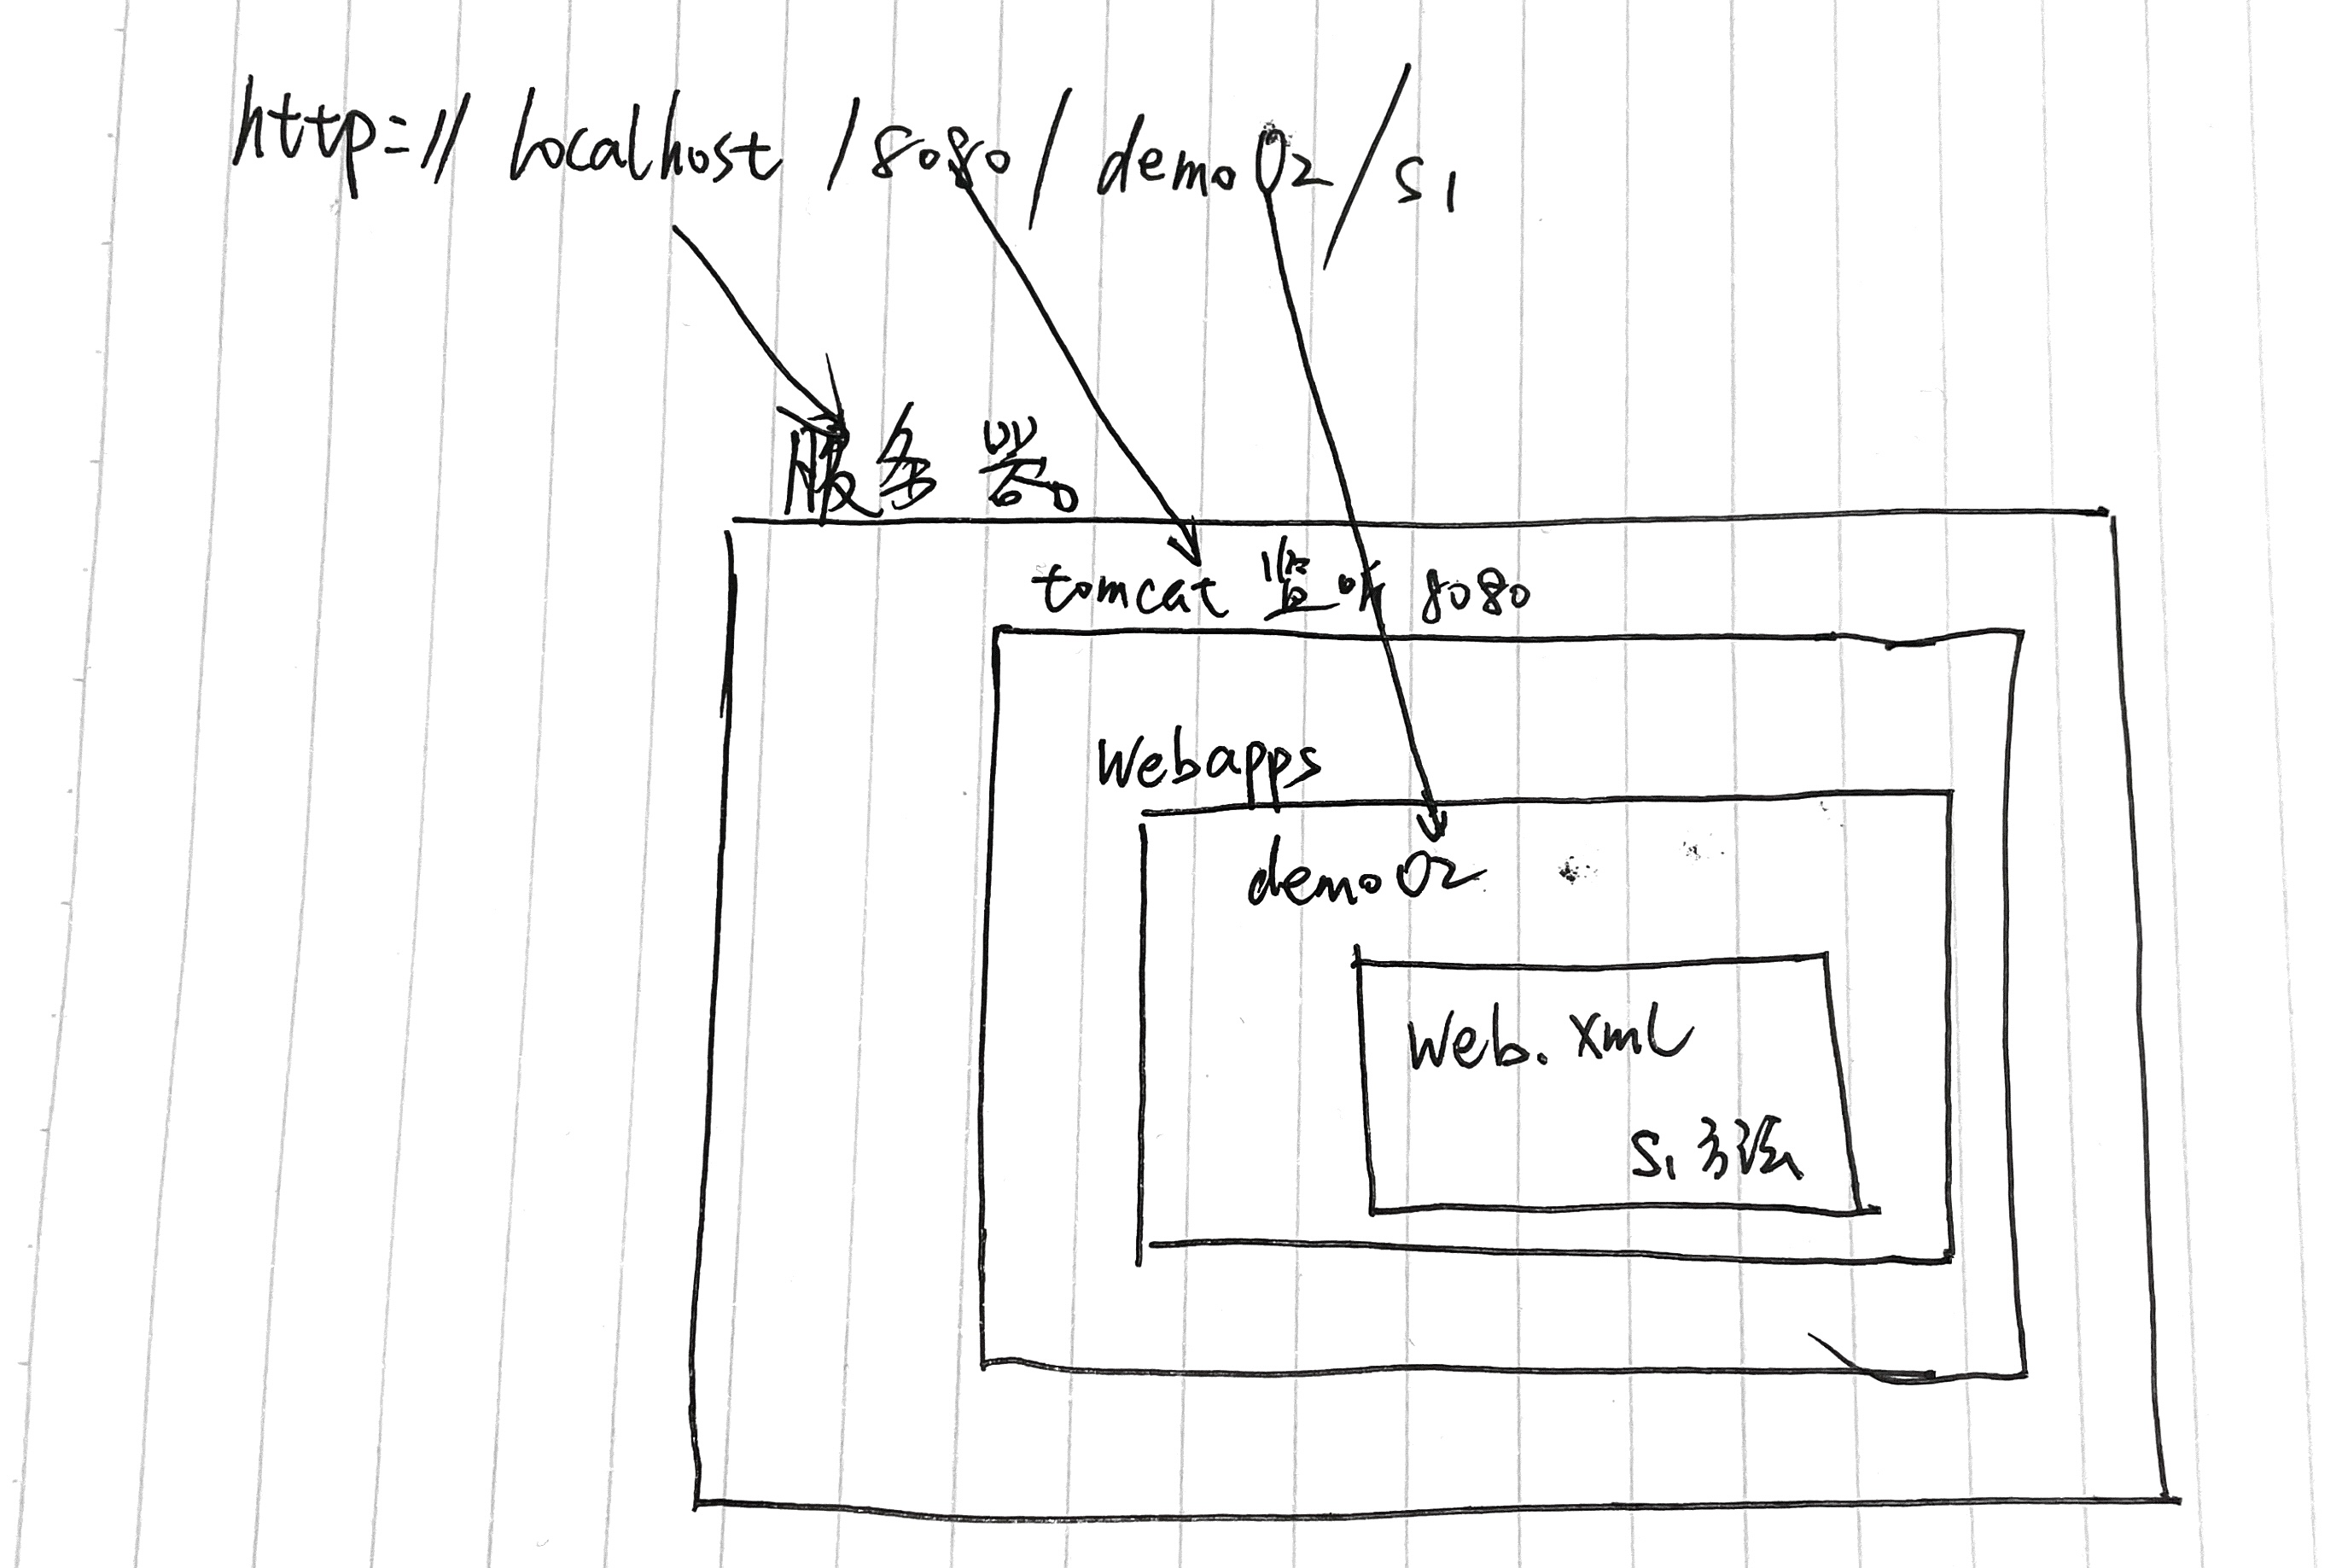 http://localhost/8080/demo02/s1
服务器
tomcat 监听 8080
Webapps
demo02
Web.xml
S1 方法